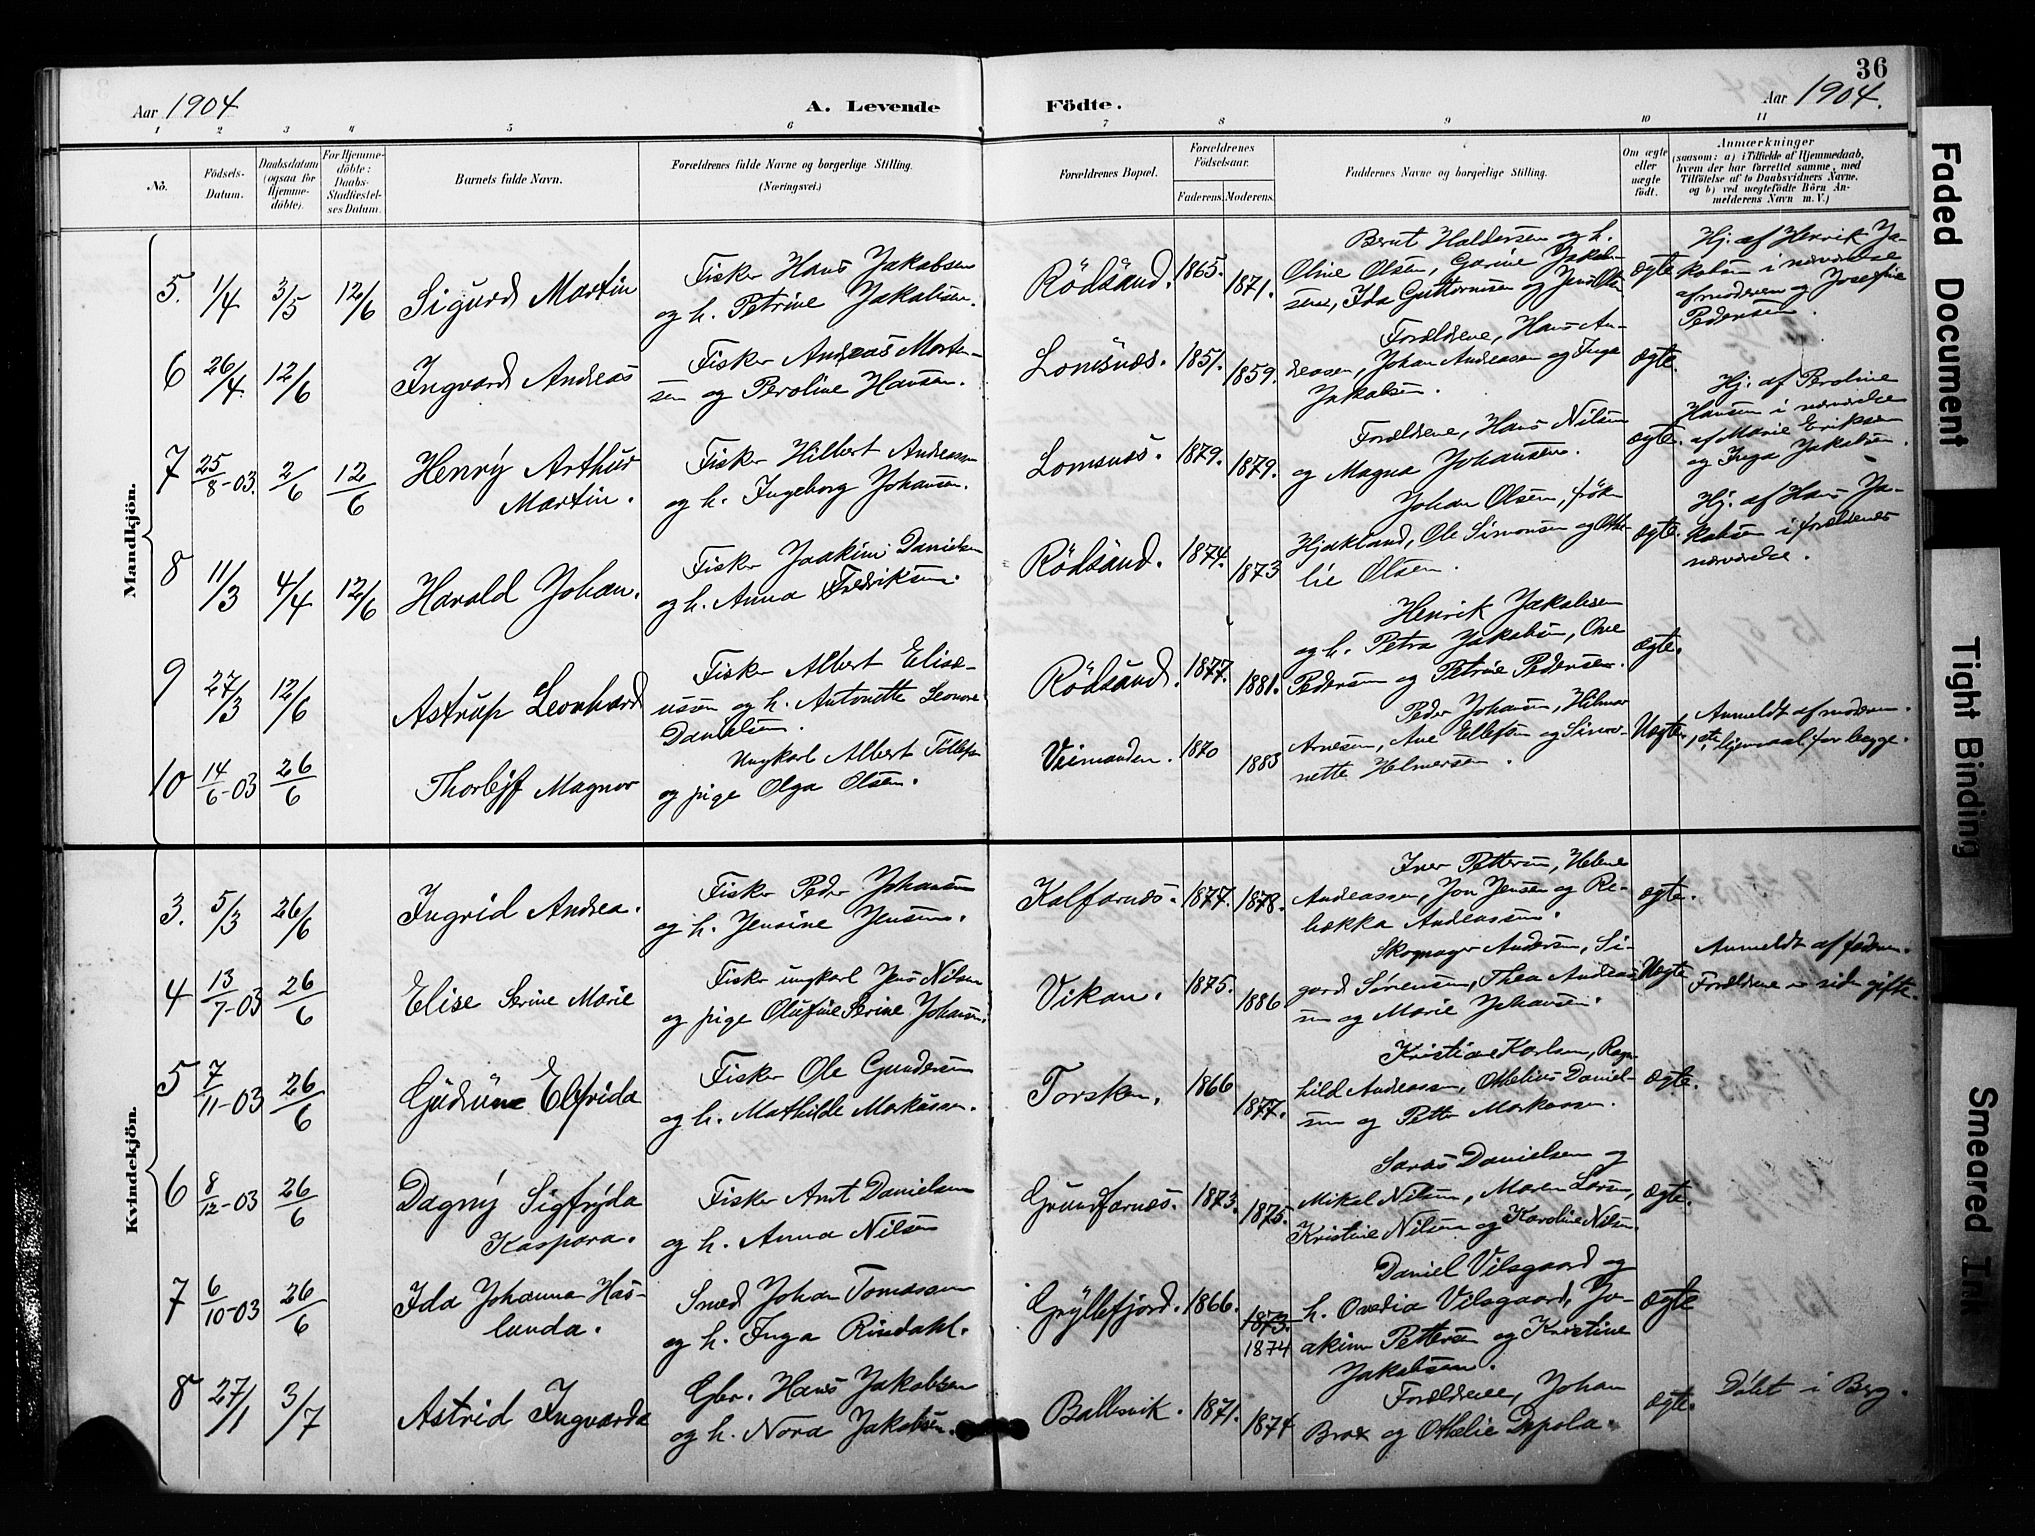 36
Aar 1904
A. Levende Födte.
Aar 1904.
1 2 3 4 5 6 7 8 9 10 11
No.
Födsels-Datum.
Daabsdatum (ogsaa for Hjemme-döbte).
For Hjemme-döbte: Daabs-Stadfæstel-ses Datum.
Barnets fulde Navn.
Forældrenes fulde Navne og borgerlige Stilling. (Næringsvei.)
Forældrenes Bopæl.
Forældrenes Födselsaar.
Faderens. Moderens.
Faddernes Navne og borgerlige Stilling.
Om ægte eller uægte födt.
Anmærkninger
(saasom: a) i Tilfælde af Hjemmedaab, hvem der har forrettet samme, med Tilföielse af to Daabsvidners Navne, og b) ved uægtefödte Börn An-melderens Navn m. V.)
Mandkjön.
5. 1/4 3/5 12/6 Sigurd Martin
Fisker Hans Jakobsen
og h. Petrine Jakobsen.
Rödsand. 1865. 1871.
Bernt Haldorsen og h.
Oline Olsen, Garine Jakob-
sen, Ida Guttormsen og Jens Olsen
ægte
Hj. af Henrik Ja-
kobsen i nærværelse
af moderen og Josefine
Pedersen.
6 26/4 12/6 Ingvard Andreas
Fisker Andreas Morten-
sen og Peroline Hansen.
Lomsnes. 1851. 1859.
Forældrene, Hans An-
dreasen, Johan Andreasen og Inga
Jakobsen.
ægte.
7 25/8-03. 2/6 12/6 Henry Arthur
Martin.
Fisker Hilbert Andreasen
og h. Ingeborg Johansen.
Lomsnes. 1879. 1879.
Forældrene, Hans Nilsen
og Magna Johansen.
ægte.
Hj. af Peroline
Hansen i nærværelse
af Marie Eriksen
og Inga Jakobsen.
8 11/3 4/4 12/6 Harald Johan.
Fisker Joakim Danielsen
og h. Anna Fredriksen.
Rödsand. 1874. 1873
Johan Olsen, frøken
Hjakland, Ole Simonsen og Othe-
lie Olsen.
ægte.
Hj. af Hans Ja-
kobsen i forældrenes
nærværelse.
9 27/3 12/6 Astrup Leonhard
Fisker Albert Elise-
ussen og h. Antonette Leonore
Danielsen.
Rödsand. 1877. 1881.
Henrik Jakobsen
og h. Petra Jakobsen, Ove
Pedersen og Petrine Pedersen.
ægte.
10 14/6-03 26/6 Thorleif Magnor
Ungkarl Albert Tollefsen
og pige Olga Olsen.
Veimanden. 1870 1883
Peder Johansen, Hilmar
Arnesen, Ane Ellefsen og Simo-
nette Helmersen.
Uægte
Anmeldt af moderen.
1ste leiermaal for begge.
Kvindekjön.
3. 5/3 26/6 Ingrid Andrea.
Fisker Peder Johansen
og h. Jensine Jensen.
Kalfarnes. 1874. 1878.
Iver Pettersen, Helene
Andreassen, Jon Jensen og Re-
bekka Andreassen.
ægte.
4 13/7-03 26/6 Elise Serine Marie
Fisker ungkarl Jens Nilsen
og pige Olufine Serine Johansen.
Vikan. 1875. 1886
Skomager Andersen, Si-
gurd Sörensen, Thea Andreas-
sen og Marie Johansen.
Uægte
Anmeldt af faderen.
Forældrene er siden gifte.
5 7/11-03 26/6 Gudrun Elfrida
Fisker Ole Gundersen
og h. Mathilde Markussen.
Torsken. 1866 1877.
Kristiane Karlsen, Ragn-
hild Andreassen, Othelius Daniel-
sen og Petter Markussen.
ægte.
6 8/12-03 26/6 Dagny Sigfryda
Kaspara.
Fisker Arnt Danielsen
og h. Anna Nilsen
Grundfarnes. 1873. 1875.
Saras Danielsen og
Mikal Nilsen, Maren Larsen,
Kristine Nilsen og Karoline Nilsen.
ægte.
7 6/10-03 26/6 Ida Johanna Has-
lunda.
Smed Johan Tomassen
og h. Inga Rindahl.
Gryllefjord. 1866. 1873. 1874
Daniel Vilsgaard og
h. Ovedia Vilsgaard, Jo-
akim Pettersen og Kristine
Jakobsen.
ægte
8 27/1 3/7 Astrid Ingvarda
Gbr. Hans Jakobsen
og h. Nora Jakobsen.
Ballesvik. 1871. 1874
Forældrene, Johan
Brox og Othelie Depola.
ægte.
Döbt i Berg.
Faded Document
Tight Binding
Smeared Ink